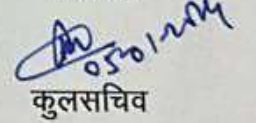 05-01-2014
कुलसचिव